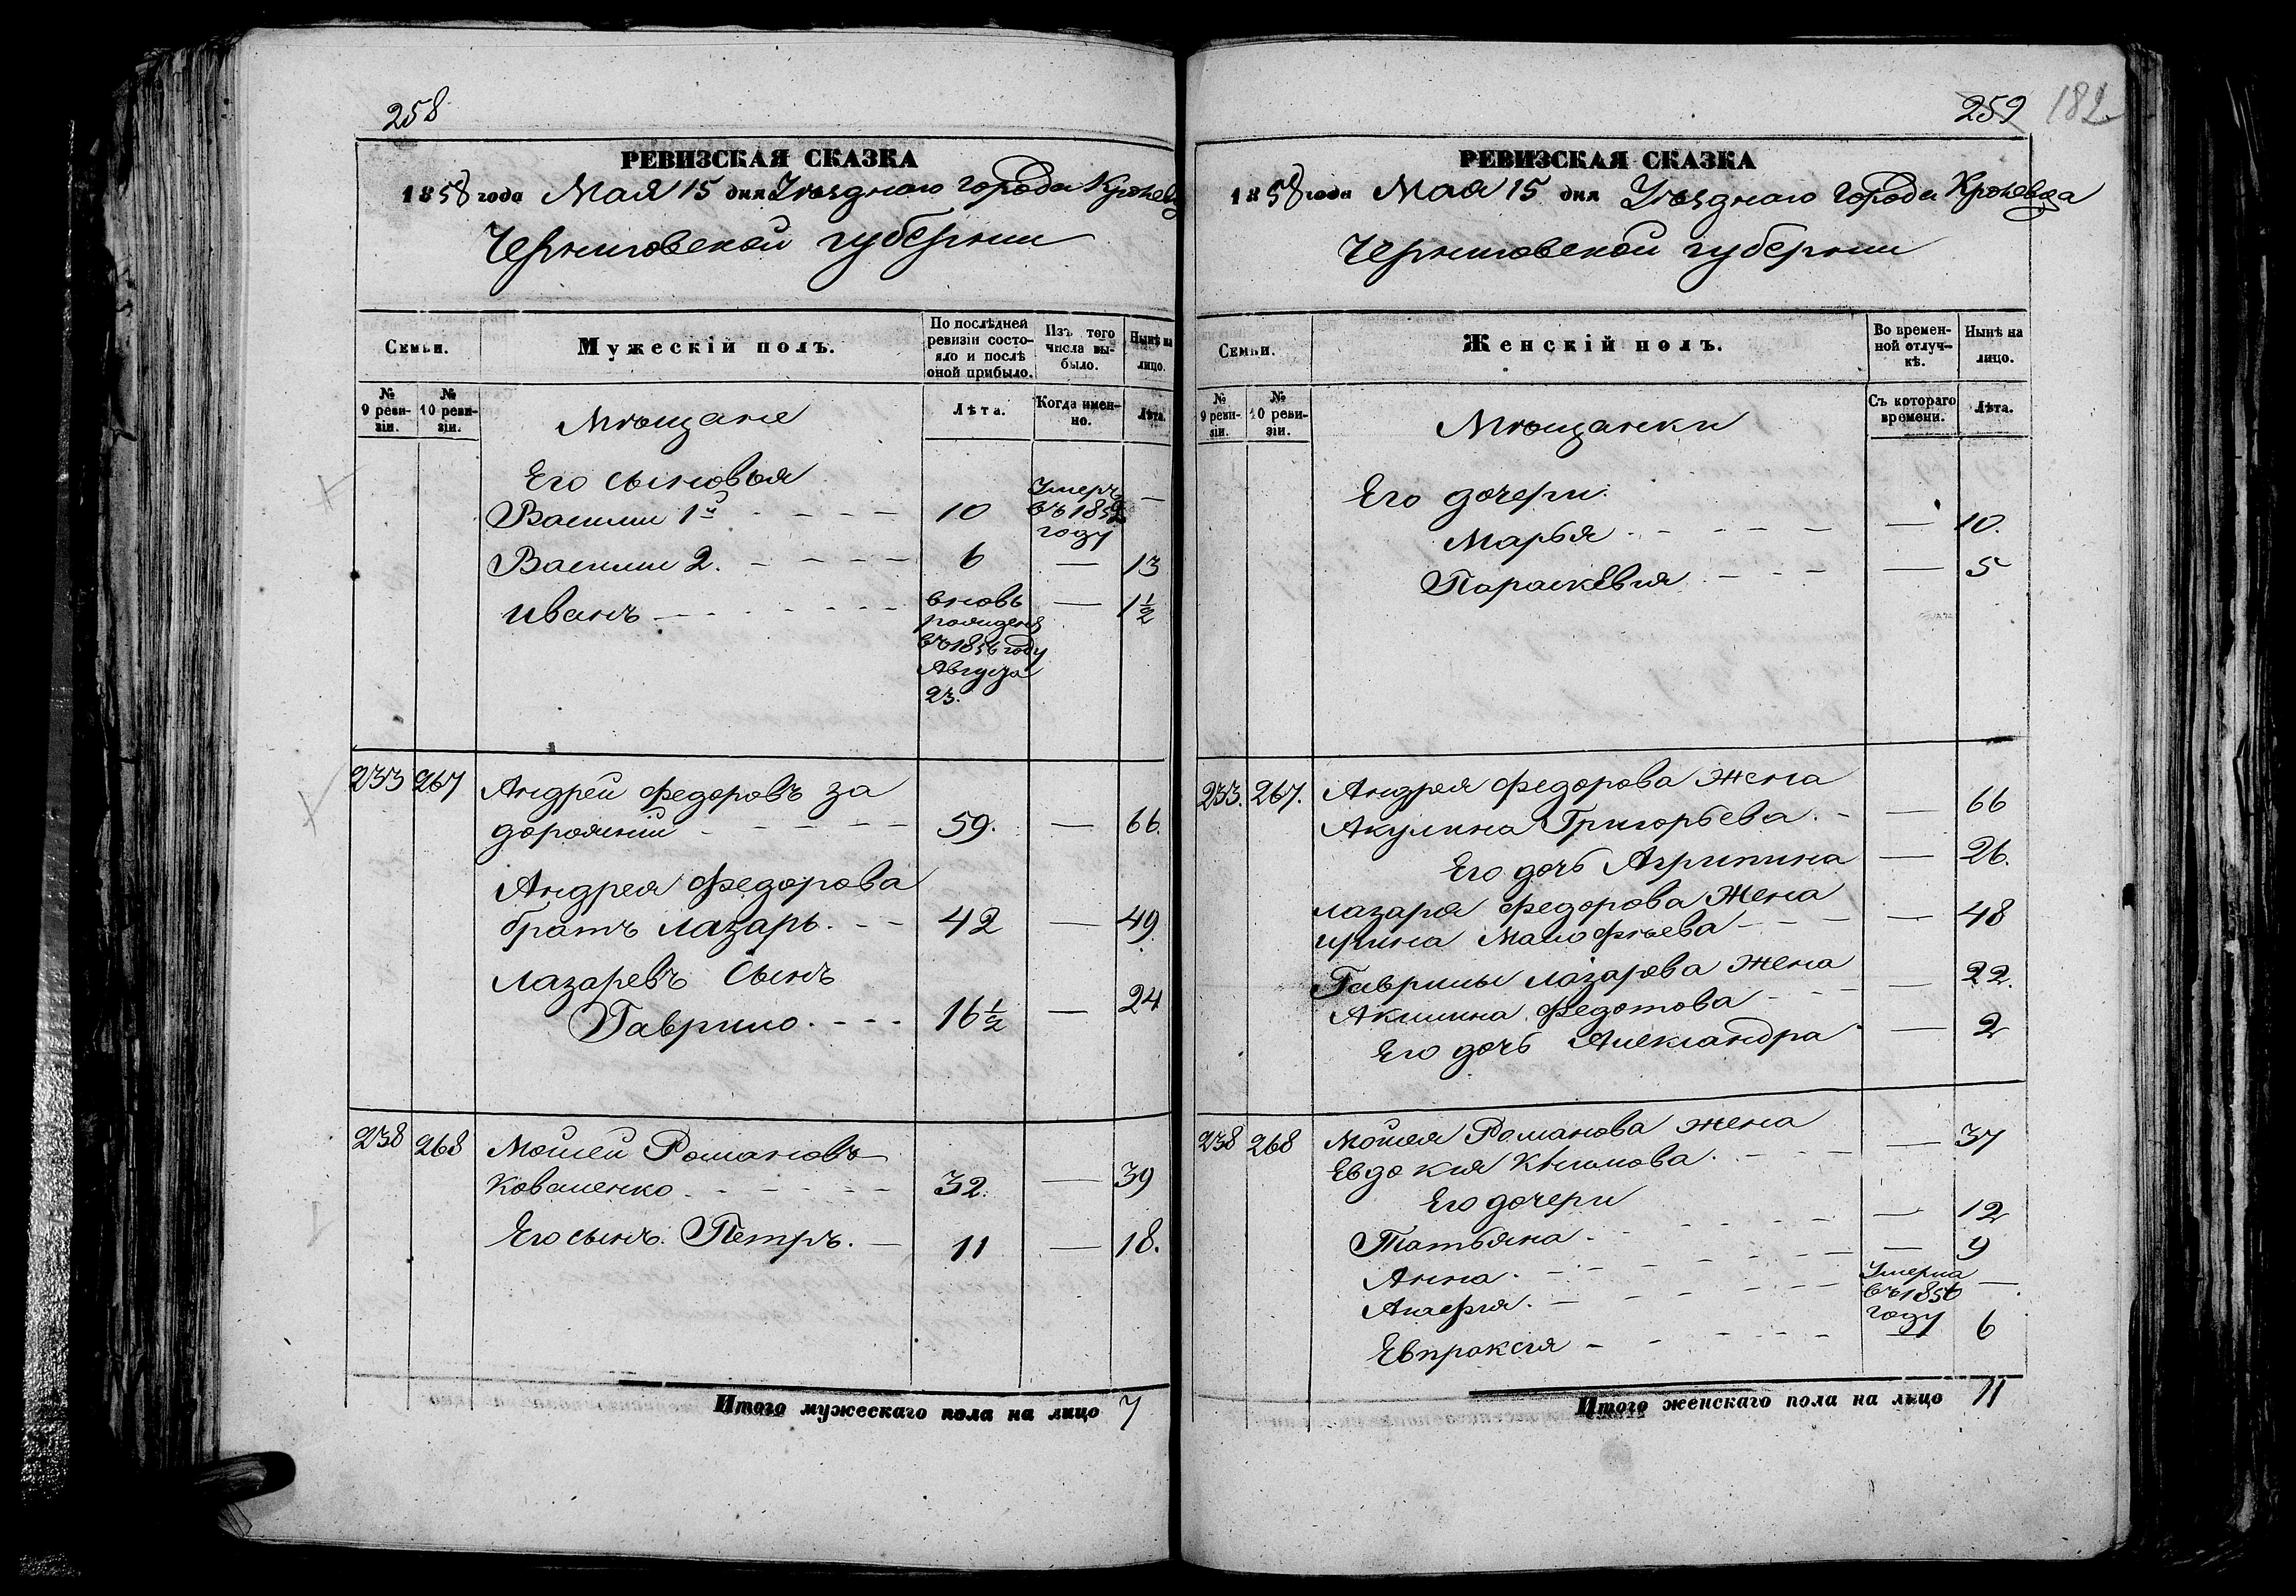 258
РЕВИЗСКАЯ СКАЗКА
1858 года Мая 15 дня Уѣзднаго города Кролевца
Черниговской губернии
Семьи.
Мужескій полъ.
По послѣдней ревизіи состояло и послѣ оной прибыло.
Изъ того числа выбыло.
Нынѣ на лицо.
№ 9 ревизіи.
№ 10 ревизіи.
Мѣщане
Лѣта.
Когда именно.
Лѣта.
Его сыновья
Василий 1й - - - - 10 Умеръ въ 1852 году —
Василий 2. - - - - 6 — 13
Иванъ - - - - - вновь рожденъ въ 1856 году Августа 23. — 1½
233 267 Андрей Федоровъ За
дорожний - - - - 59. — 66.
Андрея Федорова
братъ Лазарь. - - 42 — 49.
Лазаревъ Сынъ
Гаврило. - - - 16½ — 24
238 268 Мойсей Романовъ
Коваленко - - - - - 32. — 39
Его сынъ. Петръ. — 11 — 18.
Итого мужескаго пола на лицо 7
259 182
РЕВИЗСКАЯ СКАЗКА
1858 года Мая 15 дня Уѣзднаго города Кролевца
Черниговской губернии
Семьи.
Женскій полъ.
Во временной отлучкѣ.
Нынѣ на лицо.
№ 9 ревизіи.
№ 10 ревизіи.
Мѣщанки
Съ котораго времени.
Лѣта.
Его дочери.
Марья - - - - - — 10.
Параскевия - - - - — 5
233. 267. Андрея Федорова Жена
Акулина Григорьева. - — 66
Его дочь Агрипина — 26.
Лазаря Федорова Жена
Ирина Мал​офѣева - - - — 48
Гаврилы Лазарева Жена
Акилина Федотова - - - — 22.
Его дочь Александра — 2
238 268 Мойсея Романова жена
Евдокия Климова. - - - — 37
Его дочери
Татьяна - - - - - — 12
Анна. - - - - - — 9
Агафия. - - - - - Умерла въ 1856 году —
Евпраксия - - - - - — 6
Итого женскаго пола на лицо 11